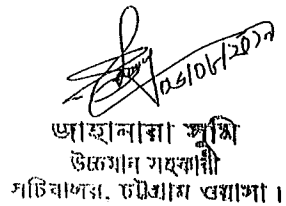 ০৯/০৮/২০১৭
জাহানারা সুমি
উচ্চমান সহকারী
সচিবালয়, চট্টগ্রাম ওয়াসা।